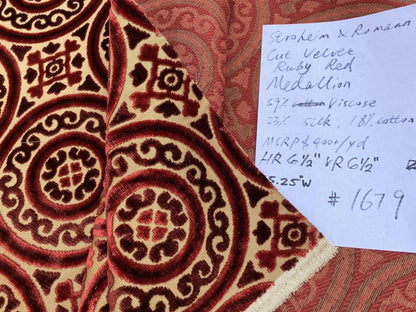 Stroheim & Romann
Cut Velvet
Ruby Red
Medallion
59% Viscose
23% silk, 18% cotton
MSRP $ 400/yd
HR 6½" VR 6½"
5.25" W
# 1679